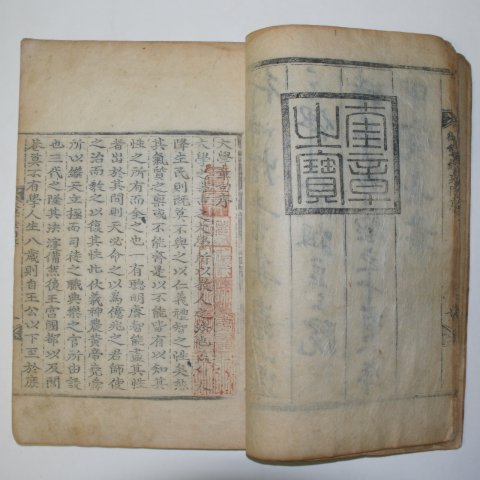 奎章
之寶
大學章句序
大學之書古之大學所以教人之法也
降生民則旣莫不與之以仁義禮智之性矣然
其氣質之稟或不能齊是以不能皆有以知其
性之所有而全之也一有聰明睿智能盡其性
者出於其間則天必命之以爲億兆之君師使
之治而教之以復其性此伏羲神農黃帝堯舜
所以繼天立極而司徒之職典樂之官所由設
也三代之隆其法寖備然後王宮國都以及閭
巷莫不有學人生八歲則自王公以下至於庶